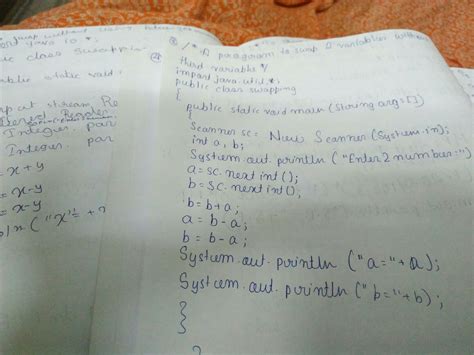 swap without using
java io *
class swappin
public static void
Integer. par
Integer. par
= x + y
= x - y
= x - y
ln ("x"= +
/* A program to swap 2 variables without
third variable */
import java.util.*;
public class swapping
{
public static void main (String arg[])
Scanner sc = New Scanner (System.in);
int a, b;
System.out.println ("Enter 2 number=");
a = sc.next int ();
b = sc.next int ();
b = b + a;
a = b - a;
b = b - a;
System.out.println ("a=" + a);
System.out.println ("b=" + b);
}
}